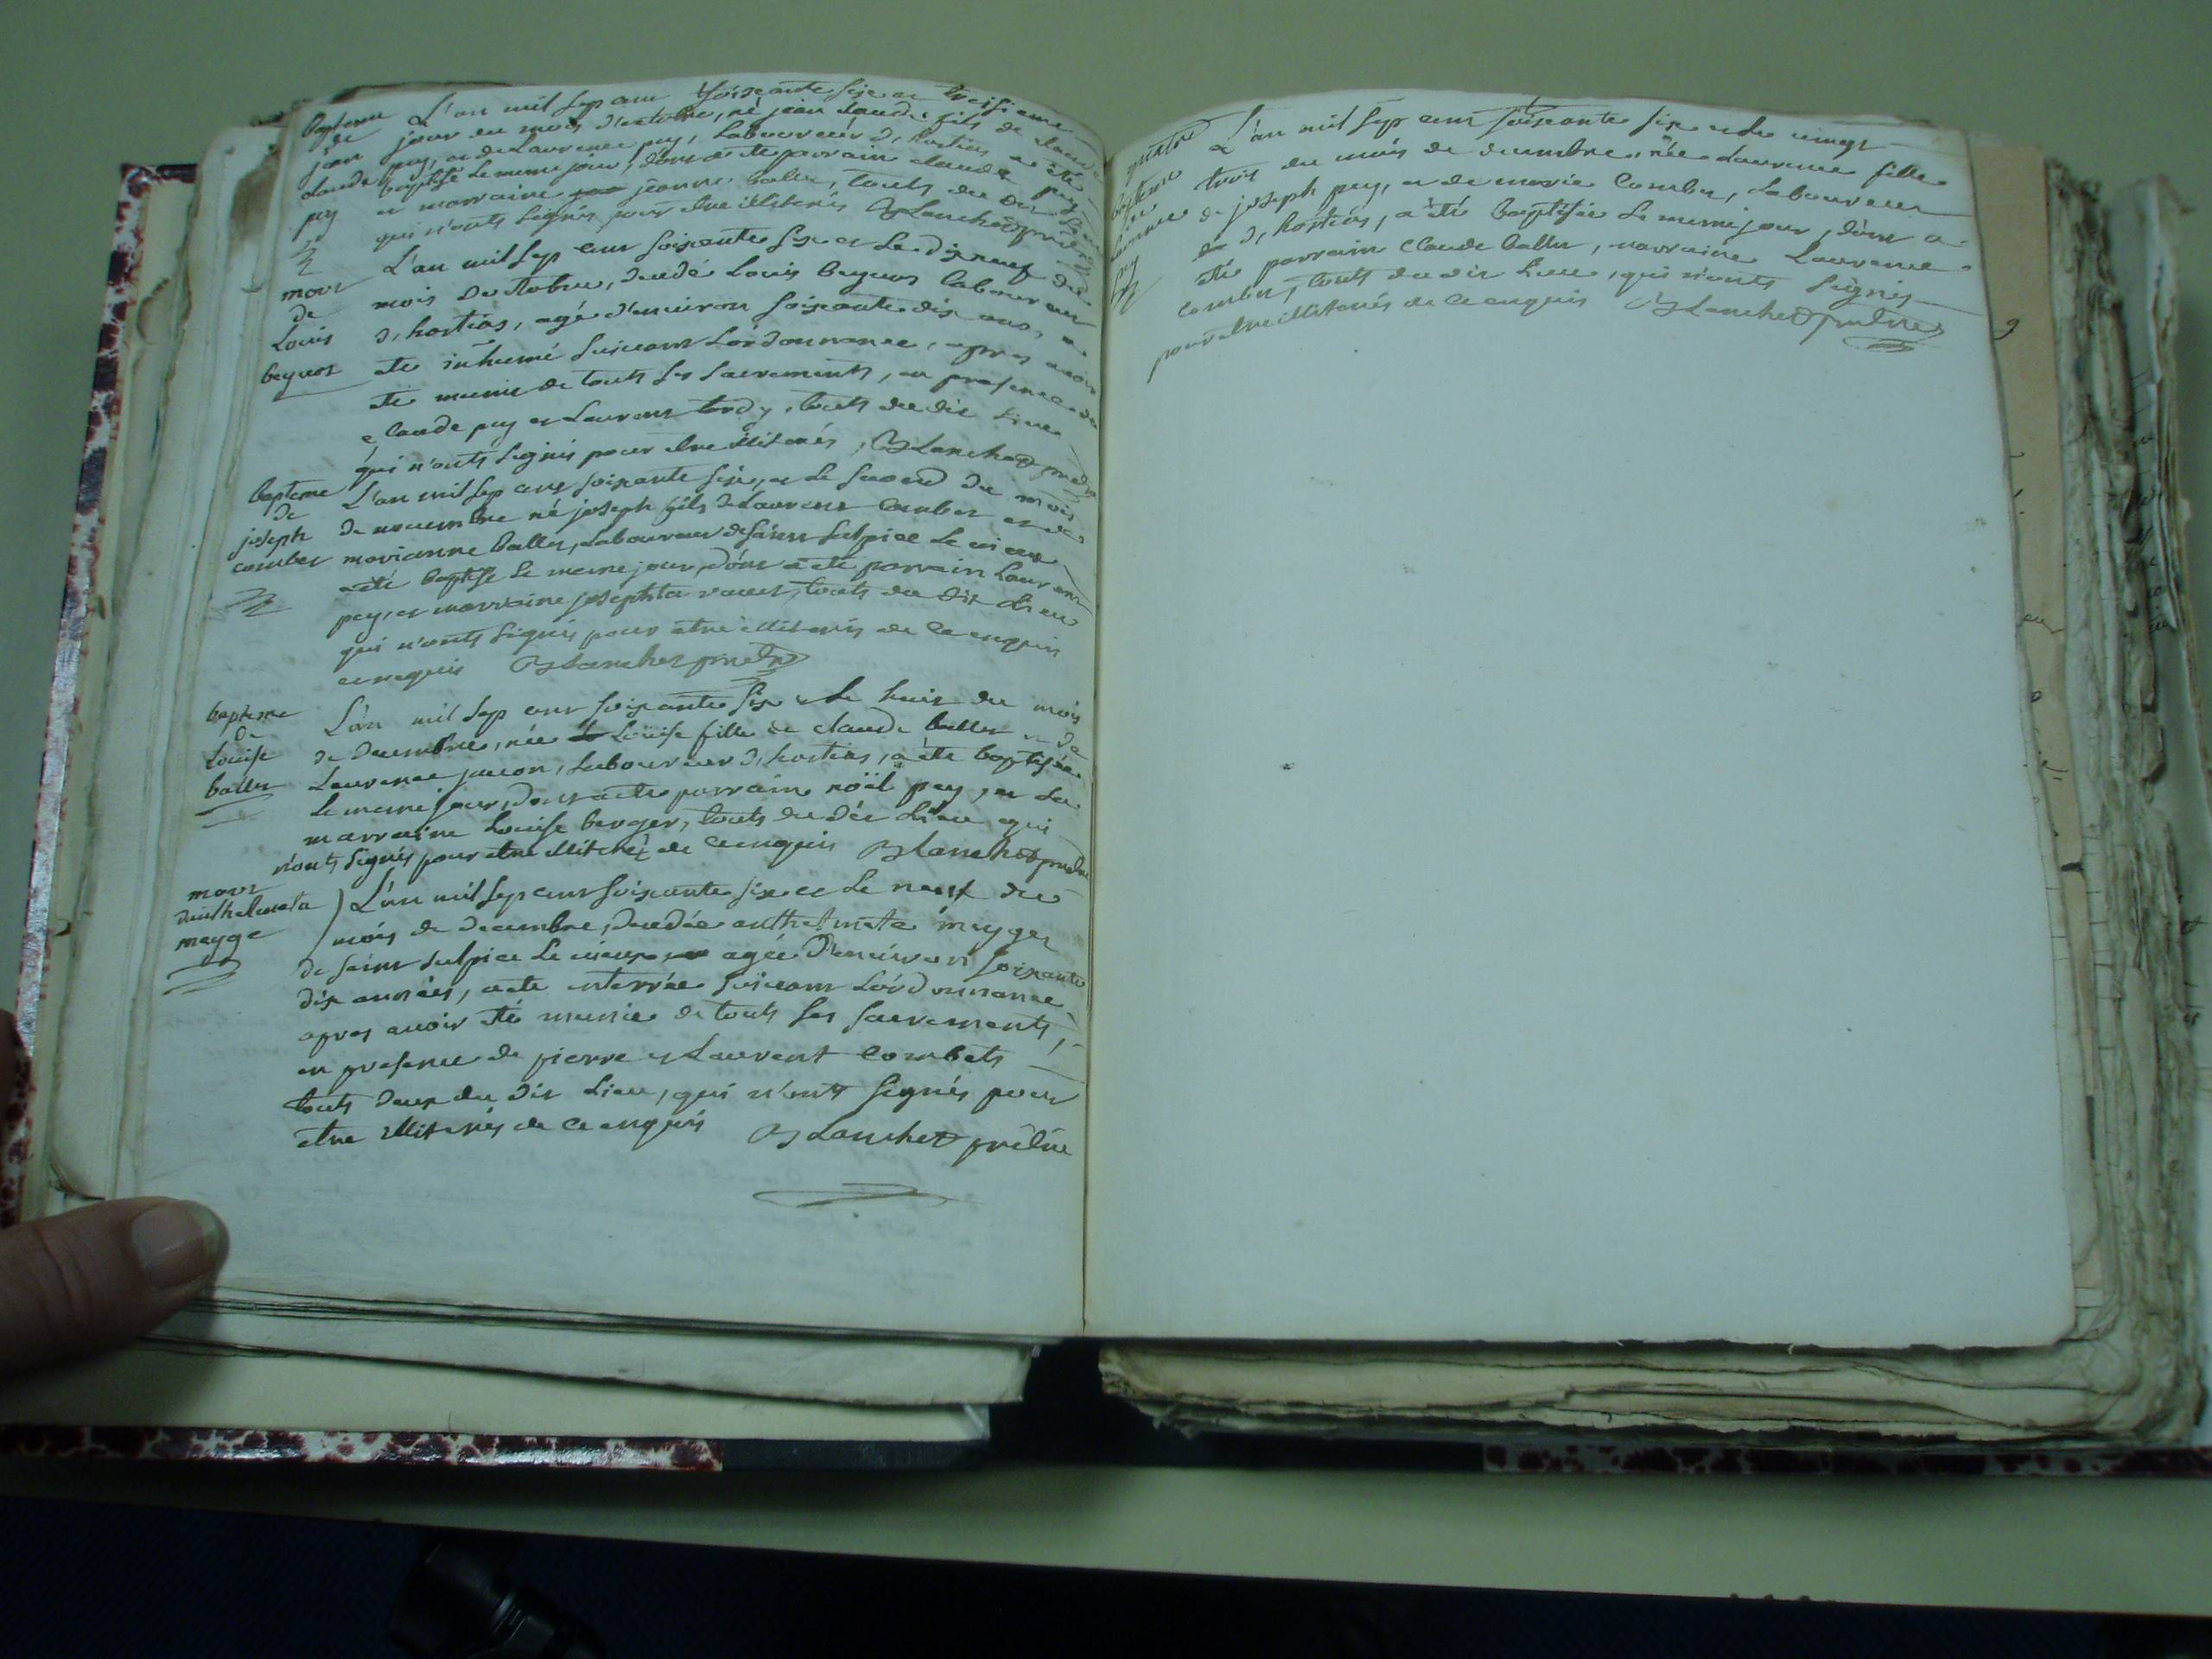 bapteme
de
jean
claude
pey
L'an mil sep cent soisante sixe et treisieme
jour du mois d'octobre, né jean claude fils de claude
pey, et de Laurence pey, Laboureur d'hostias a été
baptisé le meme jour, dont a été parrain claude pey
et marraine jeanne ballet, touts du dit
qui n'onts signés pour etre illiterés Blanchet prêtre
mort
de
Louis
beguet
L'an mil sep cent soixante six et le dixneuf du
mois D'octobre, decedé Louis beguet laboureur
d'hostias, agé d'environ soixante dix ans, a
été inhumé suivant Lordonnance, apres avoir
été munis de touts les sacrements, en presence de
claude pey et Laurent tardy, touts du dit Lieu
qui n'onts signés pour etre illiterés, Blanchet prêtre
bapteme
de
joseph
combet
L'an mil sep cent soixante sixe, et le second du mois
de novembre né joseph fils de Laurent combet et de
marianne ballet, Laboureur de saint sulpice le vieux
a été baptisé le meme jour, dont a été parrain Laurent
pey, et marraine josephta, touts du dit Lieu
qui n'onts signés pour etre illiterés de ce enquis
et requis Blanchet prêtre
bapteme
de
Louise
ballet
L'an mil sep cent soixante six et le huit du mois
de Decembre, née Loüise fille de claude ballet et de
Laurence jacon, Laboureur d'hostias, a été baptisée
le meme jour, dont a été parrain noël pey, et La
marraine Louise berger, touts du dit Lieu qui
n'onts signés pour etre illiterés de ce enquis Blanchet prêtre
mort
danthelmeta
meyge
L'an mil sep cent soixante sixe et le neuf du
mois de Decembre, decedée anthelmeta meyger
de saint sulpice le vieux agée D'environ soixante
dix années, a été enterrée suivant Lordonnance,
apres avoir été munie de touts les sacrements,
en presence de pierre et Laurent combets
touts deux du dit Lieu, qui n'onts signés pour
etre illiterés de ce enquis Blanchet prêtre
bapteme
de
Laurence
pey
L'an mil sep cent soixante six et le vingt
trois du mois de decembre, née Laurence fille
de joseph pey, et de marie Combet, Laboureur
d'hostias, a été baptisée le meme jour, dont a
été parrain Claude ballet, marraine Laurence
combet, touts du dit Lieu, qui n'onts signés
pour etre illiterés de ce enquis Blanchet prêtre